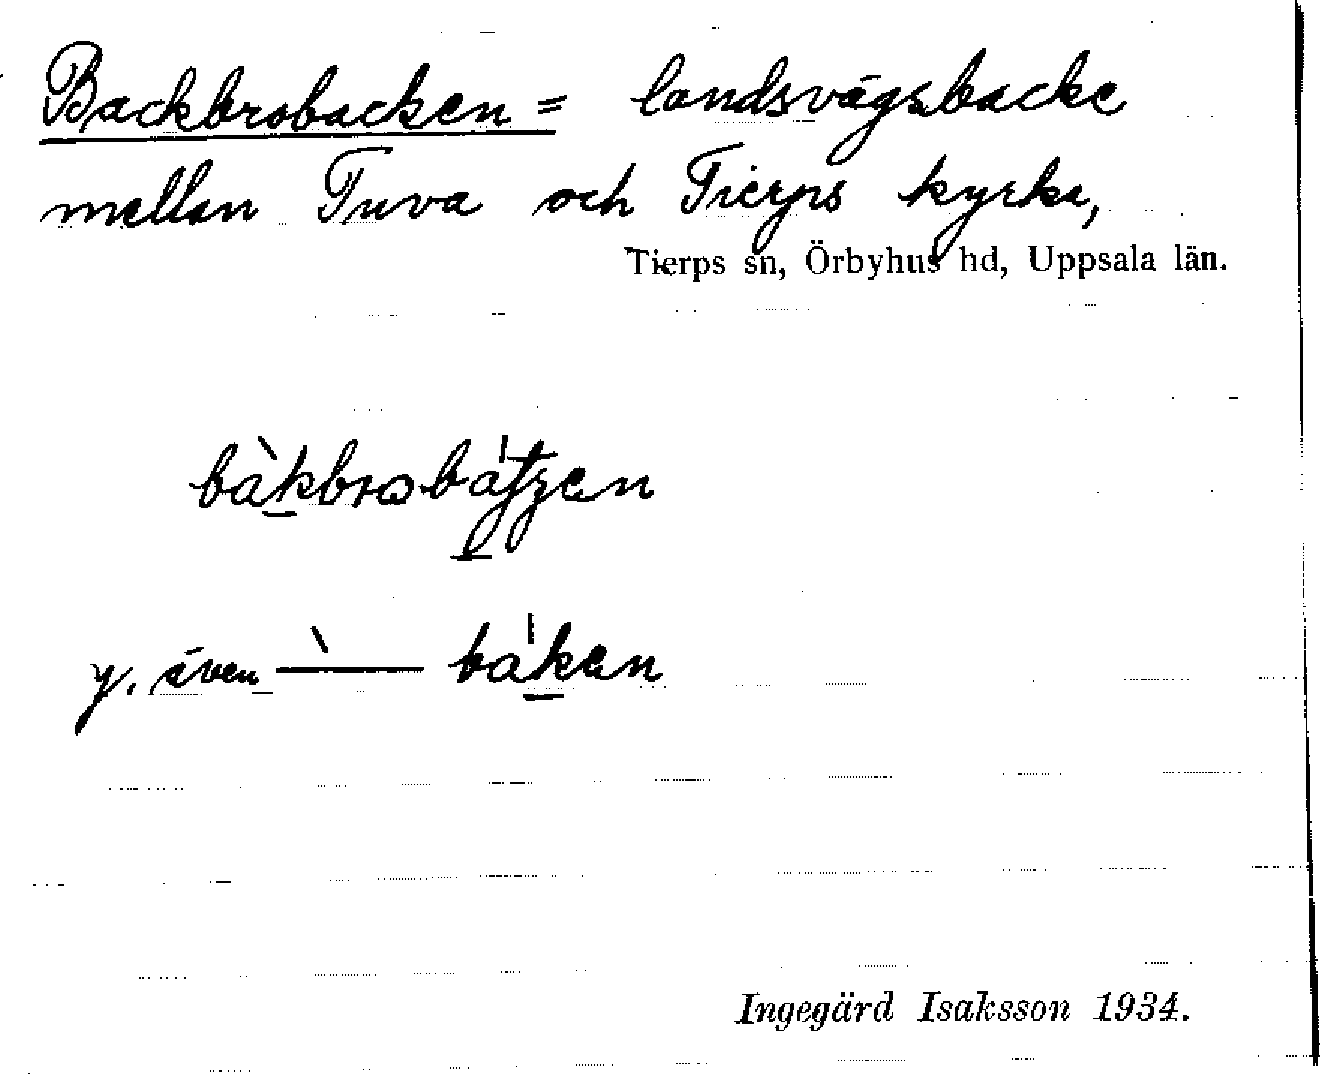 Backbrobacken = landsvägsbacke
mellan Tuva och Tierps kyrka,
Tierps sn, Örbyhus hd, Uppsala län.
bàkbrobátʃen
y. även —̀— báken
Ingegärd Isaksson 1934.